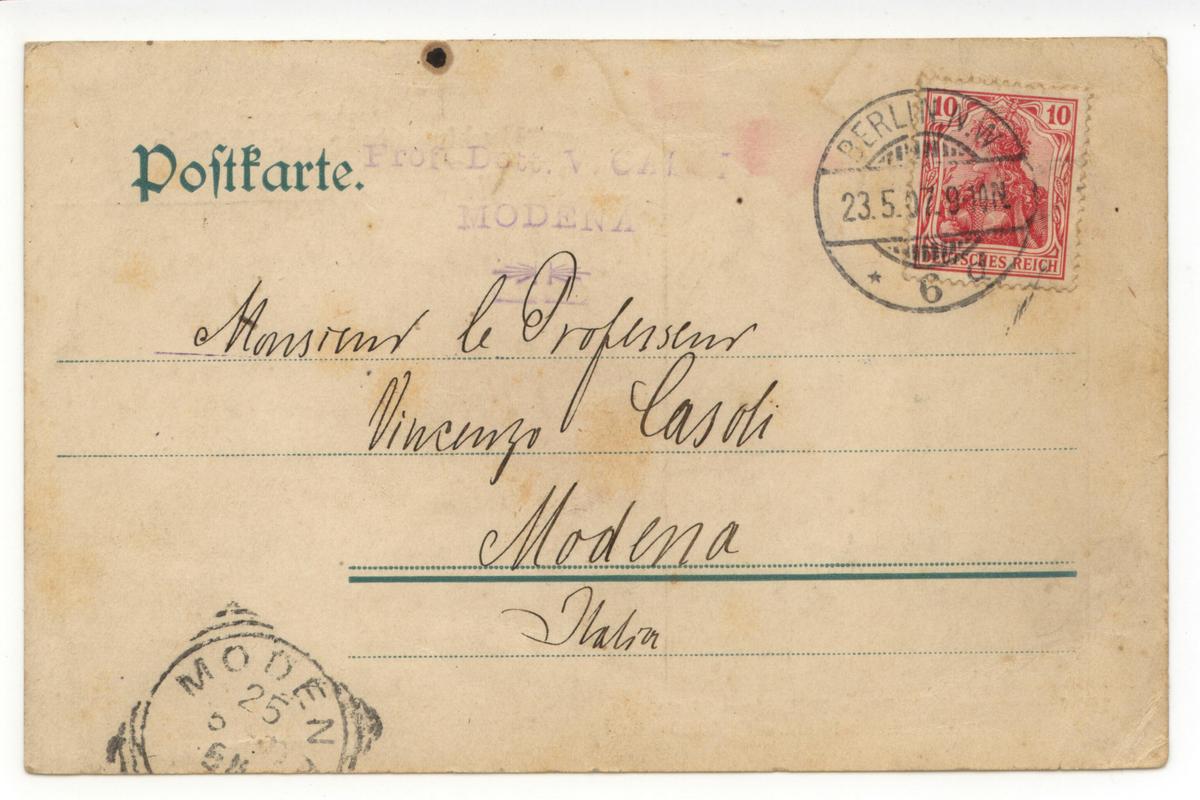 Postkarte.
Prof. Dott. V. CA
MODENA
10 10
DEUTSCHES REICH
BERLIN N.W.
23.5.07. 9-10N.
* 6 d
Monsieur le Professeur
Vincenzo Casoli
Modena
Italia
MODEN
25
5